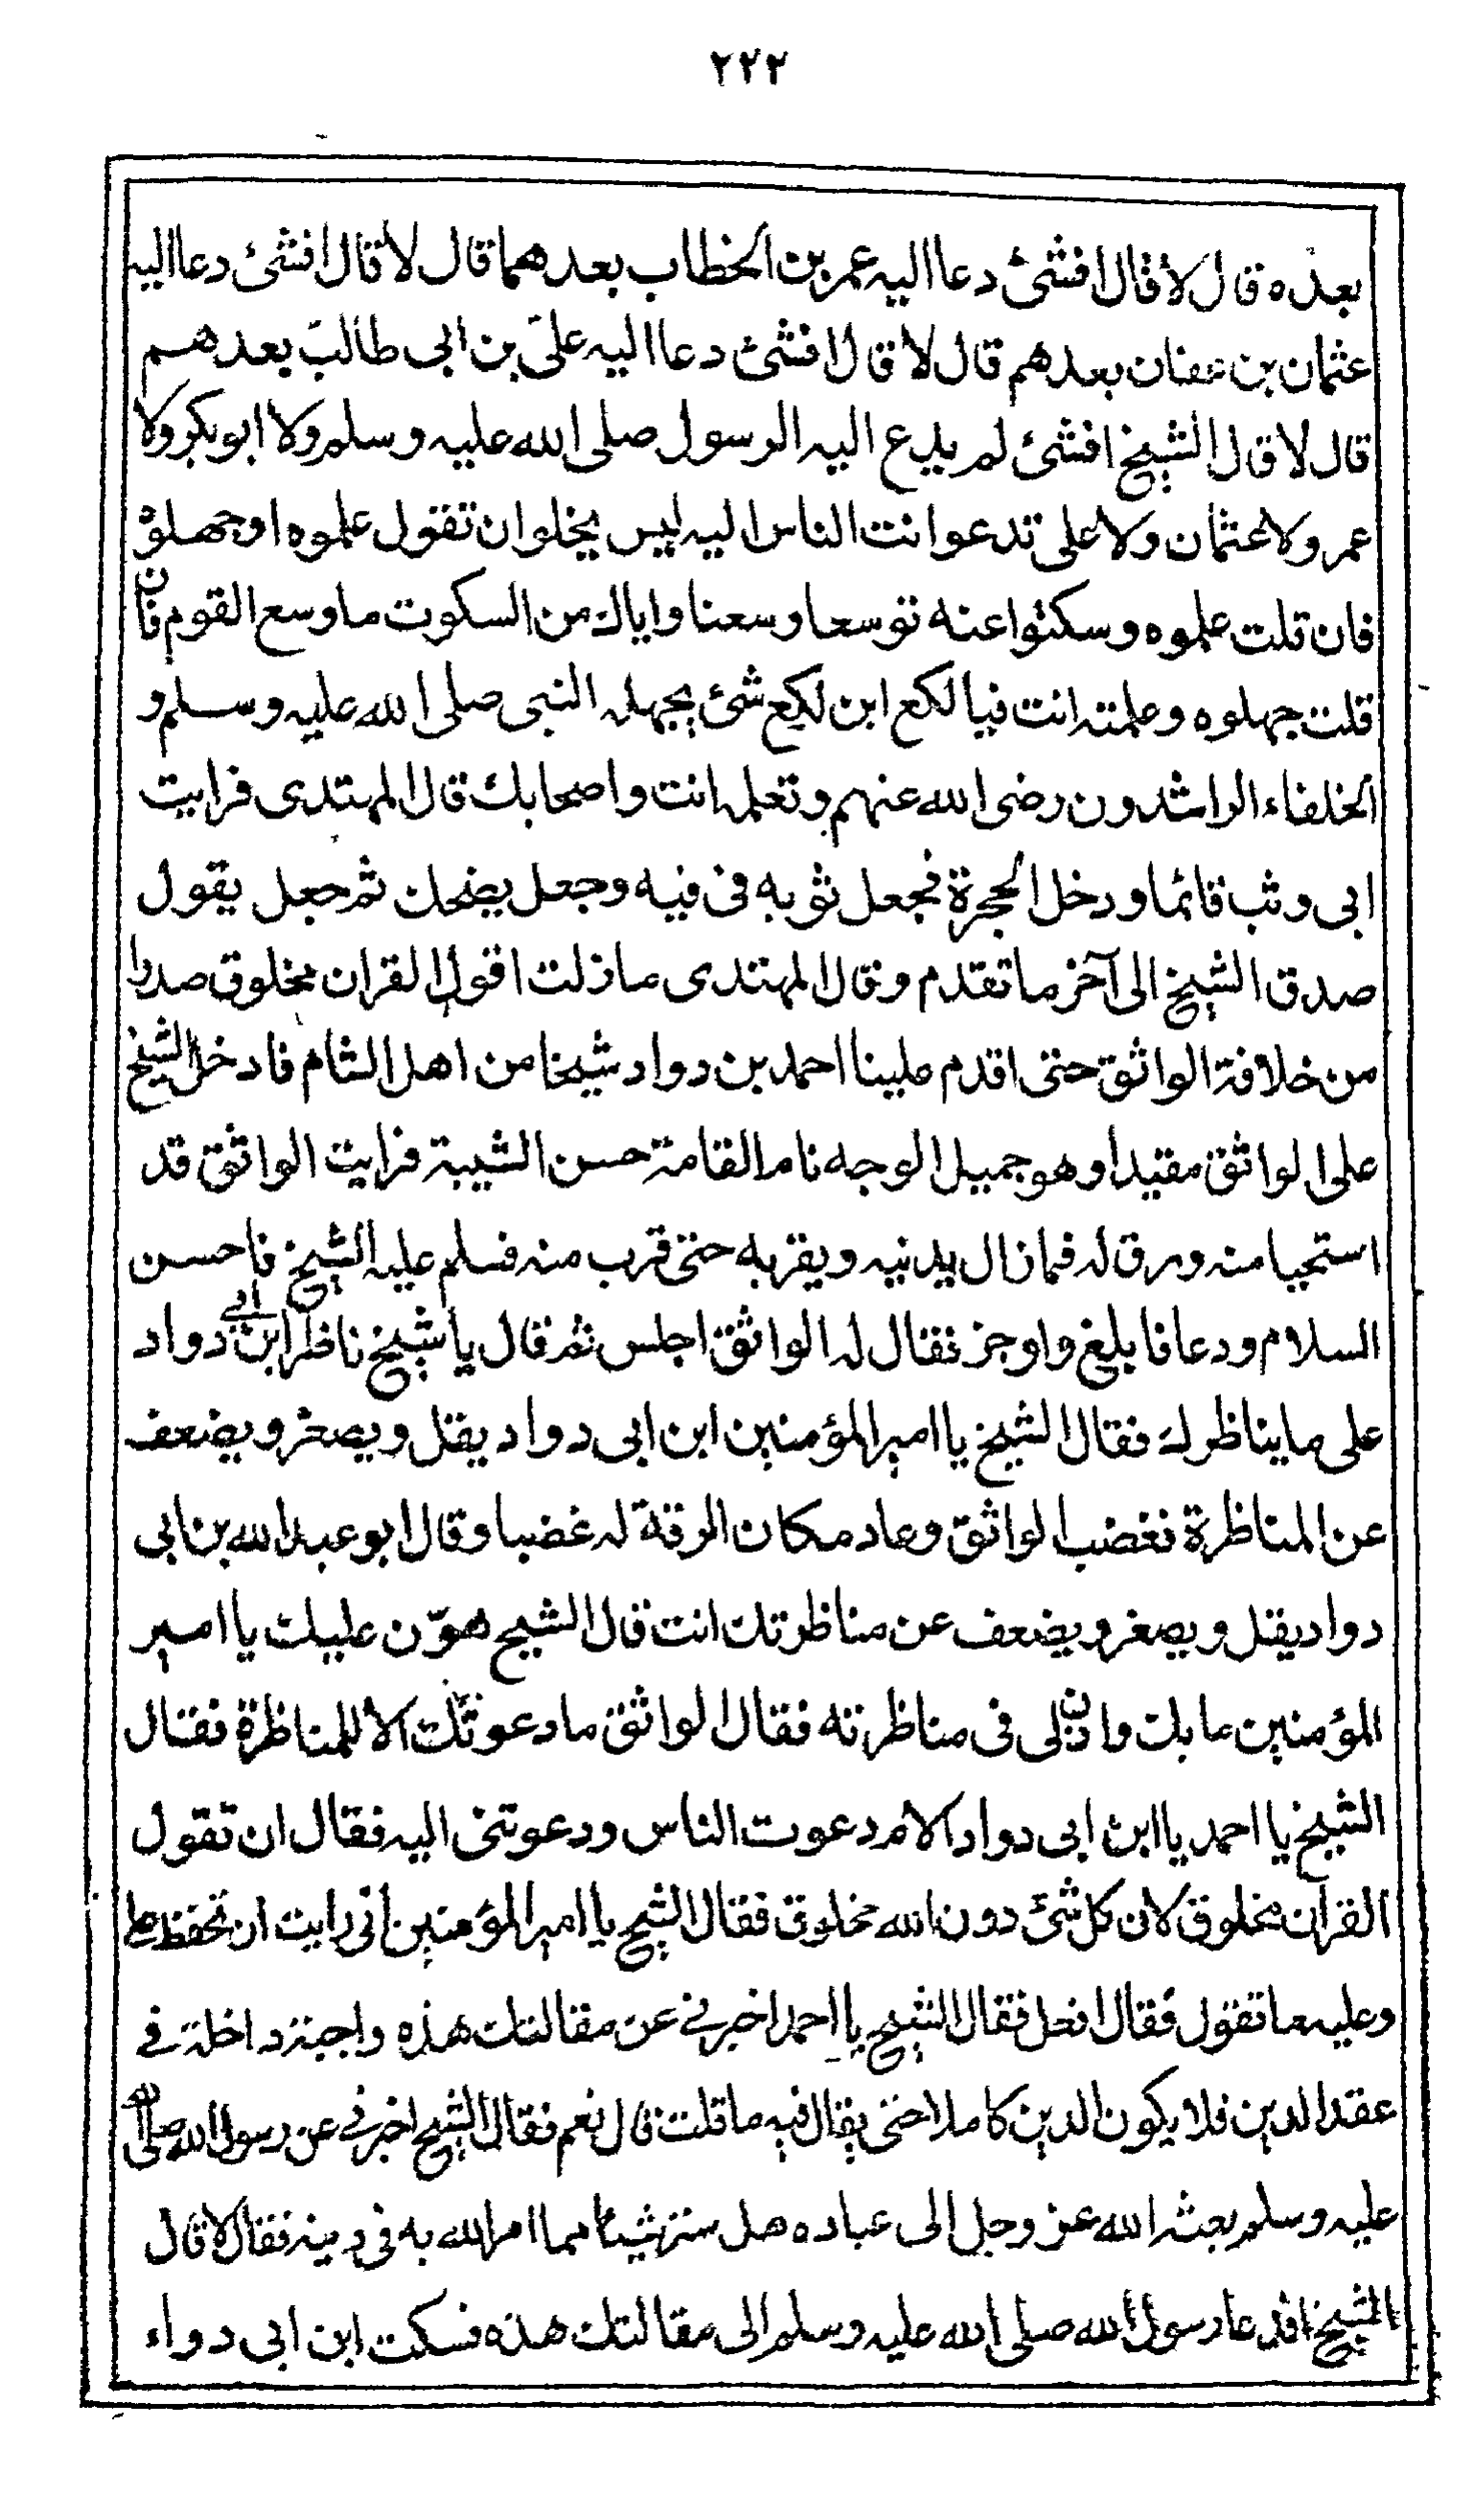 ٢٢٢
بعده قال لا قال افشئ دعا اليه عمر بن الخطاب بعدهما قال لا قال افشئ دعا اليه
عثمان بن عفان بعدهم قال لا قال افشئ دعا اليه علي بن ابى طالب بعدهم
قال لا قال الشيخ افشئ لم يدع اليه الرسول صلى الله عليه وسلم ولا ابو بكر ولا
عمر ولا عثمان ولا على تدعوا نت الناس اليه ليس يخلوا ن تقول علموه او جهلوه
فان قلت علموه وسكتوا عنه توسعا وسعنا واياك من السكوت ما وسع القوم فان
قلت جهلوه وعلمته انت فيا لكع ابن لكع شئ يجهله النبى صلى الله عليه وسلم و
الخلفاء الراشدون رضى الله عنهم وتعلمه انت واصحابك قال المهتدى فرايت
ابى وثب قائما ودخل الحجرة فجعل ثوبه فى فيه وجعل يضحك ثم جعل يقول
صدق الشيخ الى آخر ما تقدم وقال المهتدى ما زلت اقول القران مخلوق صدرا
من خلافة الواثق حتى اقدم علينا احمد بن دواد شيخا من اهل الشام فادخل الشيخ
على الواثق مقيدا وهو جميل الوجه تام القامة حسن الشيبة فرايت الواثق قد
استحيا منه ورق له فما زال يدنيه ويقربه حتى قرب منه فسلم عليه الشيخ فاحسن
السلام ودعا فابلغ واوجز فقال له الواثق اجلس ثم قال يا شيخ ناظر ابن ابي دواد
على ما يناظرك فقال الشيخ يا امير المؤمنين ابن ابى دواد يقل ويصغر ويضعف
عن المناظرة فغضب الواثق وعاد مكان الرقة له غضبا وقال ابو عبد الله بن ابى
دواد يقل ويصغر ويضعف عن مناظرتك انت قال الشيخ هوّن عليك يا امير
المؤمنين ما بك واذن لى فى مناظرته فقال الواثق ما دعوتك الا للمناظرة فقال
الشيخ يا احمد يا ابن ابى دواد الام دعوت الناس ودعوتنى اليه فقال ان تقول
القران مخلوق لان كل شئ دون الله مخلوق فقال الشيخ يا امير المؤمنين انى رايت ان تحفظ على
وعليه ما تقول فقال افعل فقال الشيخ يا احمد اخبرنى عن مقالتك هذه واجبة داخلة فى
عقد الدين فلا يكون الدين كاملا حتى يقال فيه ما قلت قال نعم فقال الشيخ اخبرنى عن رسول الله صلى الله
عليه وسلم بعثه الله عز وجل الى عباده هل ستر شيئا مما امر الله به فى دينه فقال لا قال
الشيخ افدعا رسول الله صلى الله عليه وسلم الى مقالتك هذه فسكت ابن ابى دواء